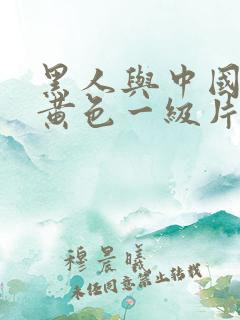 黑人與中國
黃色一級片
穆晨曦
未经同意禁止转载